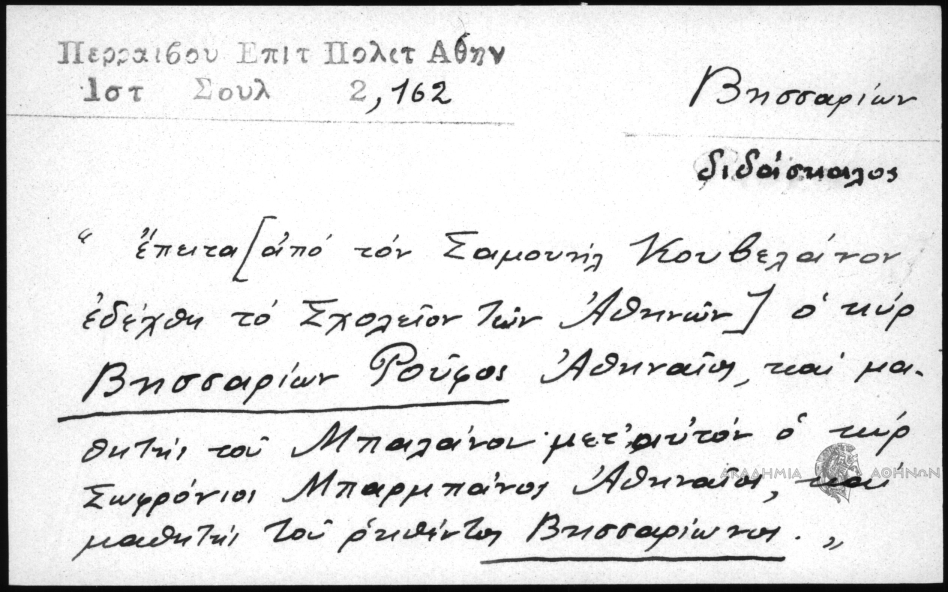 Περραιβου Επιτ Πολετ Αθην
1στ Σουλ 2,162
Βησσαρίων
διδάσκαλος
“ ἔπειτα [ἀπό τόν Σαμουήλ Κουβελάνον
ἐδέχθη τό Σχολεῖον τῶν Ἀθηνῶν] ὁ κύρ
Βησσαρίων Ροῦφος Ἀθηναῖος, καί μα-
θητής τοῦ Μπαλάνου· μετ' αὐτόν ὁ κύρ
Σωφρόνιος Μπαρμπάνος Ἀθηναῖος, καί
μαθητής τοῦ ῥηθέντος Βησσαρίωνος. „
ΑΚΑΔΗΜΙΑ ΑΘΗΝΩΝ